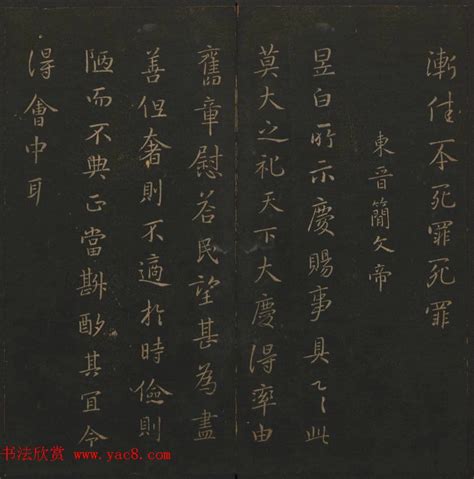 漸佳不死罪死罪
東晉簡文帝
昱白所示慶賜事具此
莫大之祀天下大慶得率由
舊章慰荅民望甚為盡
善但奢則不適於時儉則
陋而不典正當斟酌其宜令
得會中耳
书法欣赏 www.yac8.com